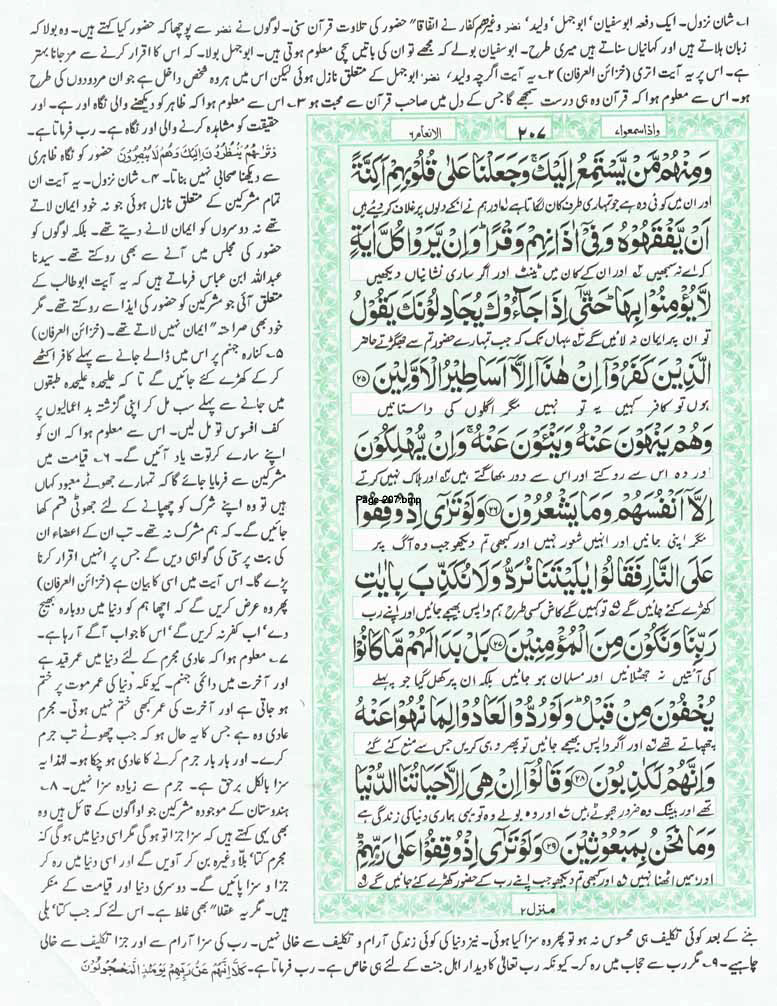 ۱۔ شان نزول۔ ایک دفعہ ابوسفیان' ابوجہل' ولید' نضر وغیرہم کفار نے اتفاقاً" حضور کی تلاوت قرآن سنی۔ لوگوں نے نضر سے پوچھا کہ حضور کیا کہتے ہیں۔ وہ بولا کہ
زبان ہلاتے ہیں اور کہانیاں سناتے ہیں میری طرح۔ ابوسفیان بولے کہ مجھے تو ان کی باتیں سچی معلوم ہوتی ہیں۔ ابوجہل بولا۔ کہ اس کا اقرار کرنے سے مرجانا بہتر
ہے۔ اس پر یہ آیت اتری (خزائن العرفان) ۲۔ یہ آیت اگرچہ ولید' نضر' ابوجہل کے متعلق نازل ہوئی لیکن اس میں ہر وہ شخص داخل ہے جو ان مردودوں کی طرح
ہو۔ اس سے معلوم ہوا کہ قرآن وہ ہی درست سمجھے گا جس کے دل میں صاحب قرآن سے محبت ہو ۳۔ اس سے معلوم ہوا کہ ظاہر کو دیکھنے والی نگاہ اور ہے۔ اور
حقیقت کو مشاہدہ کرنے والی اور نگاہ ہے۔ رب فرماتا ہے۔
وَتَرٰىهُمْ يَنْظُرُوْنَ اِلَيْكَ وَهُمْ لَا يُبْصِرُوْنَ حضور کو نگاہ ظاہری
سے دیکھنا صحابی نہیں بناتا۔ ۴۔ شان نزول۔ یہ آیت ان
تمام مشرکین کے متعلق نازل ہوئی جو نہ خود ایمان لاتے
تھے نہ دوسروں کو ایمان لانے دیتے تھے۔ بلکہ لوگوں کو
حضور کی مجلس میں آنے سے بھی روکتے تھے۔ سیدنا
عبداللہ ابن عباس فرماتے ہیں کہ یہ آیت ابوطالب کے
متعلق آئی جو مشرکین کو حضور کی ایذا سے روکتے تھے۔ مگر
خود بھی صراحتہ" ایمان نہیں لاتے تھے۔ (خزائن العرفان)
۵۔ کنارہ جہنم پر اس میں ڈالے جانے سے پہلے کافر اکٹھے
کر کے کھڑے کئے جائیں گے تا کہ علیحدہ علیحدہ طبقوں
میں جانے سے پہلے سب مل کر اپنی گزشتہ بد اعمالیوں پر
کف افسوس تو مل لیں۔ اس سے معلوم ہوا کہ ان کو
اپنے سارے کرتوت یاد آئیں گے۔ ۶۔ قیامت میں
مشرکین سے فرمایا جائے گا کہ تمہارے جھوٹے معبود کہاں
ہیں تو وہ اپنے شرک کو چھپانے کے لئے جھوٹی قسم کھا
جائیں گے۔ کہ ہم مشرک نہ تھے۔ تب ان کے اعضاء ان
کی بت پرستی کی گواہی دیں گے جس پر انہیں اقرار کرنا
پڑے گا۔ اس آیت میں اسی کا بیان ہے (خزائن العرفان)
پھر وہ عرض کریں گے کہ اچھا ہم کو دنیا میں دوبارہ بھیج
دے' اب کفر نہ کریں گے' اس کا جواب آگے آ رہا ہے۔
۷۔ معلوم ہوا کہ عادی مجرم کے لئے دنیا میں عمر قید ہے
اور آخرت میں دائمی جہنم۔ کیونکہ دنیا کی عمر موت پر ختم
ہو جاتی ہے اور آخرت کی عمر کبھی ختم نہیں ہوتی۔ مجرم
عادی وہ ہے جس کا یہ حال ہو کہ جب چھوٹے تب جرم
کرے۔ اور بار بار جرم کرنے کا عادی ہو چکا ہو۔ لہٰذا یہ
سزا بالکل برحق ہے۔ جرم سے زیادہ سزا نہیں۔ ۸۔
ہندوستان کے موجودہ مشرکین جو اواگون کے قائل ہیں وہ
بھی یہی کہتے ہیں کہ سزا جزا تو ہوگی مگر اسی دنیا میں ہوگی کہ
مجرم کتا' بلا وغیرہ بن کر آویں گے اور اسی دنیا میں رہ کر
جزا و سزا پائیں گے۔ دوسری دنیا اور قیامت کے منکر
ہیں۔ مگر یہ عقلاً" بھی غلط ہے۔ اس لئے کہ جب کتا' بلی
واذا سمعوا ۷ ۲۰۷ الانعام ۶
وَمِنْهُمْ مَّنْ يَّسْتَمِعُ اِلَيْكَ ۚ وَجَعَلْنَا عَلٰى قُلُوْبِهِمْ اَكِنَّةً
اور ان میں کوئی وہ ہے جو تمہاری طرف کان لگاتا ہے اور ہم نے انکے دلوں پر غلاف کر دیئے ہیں
اَنْ يَّفْقَهُوْهُ وَفِيْۤ اٰذَانِهِمْ وَقْرًا ؕ وَاِنْ يَّرَوْا كُلَّ اٰيَةٍ
کہ اسے نہ سمجھیں ۲ اور ان کے کان میں ٹینٹ اور اگر ساری نشانیاں دیکھیں
لَّا يُؤْمِنُوْا بِهَا ؕ حَتّٰۤى اِذَا جَآءُوْكَ يُجَادِلُوْنَكَ يَقُوْلُ
تو ان پر ایمان نہ لائیں گے ۳ یہاں تک کہ جب تمہارے حضور تم سے جھگڑتے حاضر
الَّذِيْنَ كَفَرُوْۤا اِنْ هٰذَاۤ اِلَّاۤ اَسَاطِيْرُ الْاَوَّلِيْنَ ﴿۲۵﴾
ہوں تو کافر کہیں یہ تو نہیں مگر اگلوں کی داستانیں
وَهُمْ يَنْهَوْنَ عَنْهُ وَيَنْـَٔوْنَ عَنْهُ ۚ وَاِنْ يُّهْلِكُوْنَ
اور وہ اس سے روکتے اور اس سے دور بھاگتے ہیں ۴ اور ہلاک نہیں کرتے
Page 207.bmp
اِلَّاۤ اَنْفُسَهُمْ وَمَا يَشْعُرُوْنَ ﴿۲۶﴾ وَلَوْ تَرٰۤى اِذْ وُقِفُوْا
مگر اپنی جانیں اور انہیں شعور نہیں اور کبھی تم دیکھو جب وہ آگ پر
عَلَى النَّارِ فَقَالُوْا يٰلَيْتَنَا نُرَدُّ وَلَا نُكَذِّبَ بِاٰيٰتِ
کھڑے کئے جائیں گے ۵ تو کہیں گے کاش کسی طرح ہم واپس بھیجے جائیں اور اپنے رب
رَبِّنَا وَنَكُوْنَ مِنَ الْمُؤْمِنِيْنَ ﴿۲۷﴾ بَلْ بَدَا لَهُمْ مَّا كَانُوْا
کی آئتیں نہ جھٹلائیں اور مسلمان ہو جائیں بلکہ ان پر کھل گیا جو پہلے
يُخْفُوْنَ مِنْ قَبْلُ ؕ وَلَوْ رُدُّوْا لَعَادُوْا لِمَا نُهُوْا عَنْهُ
چھپاتے تھے ۶ اور اگر واپس بھیجے جائیں تو پھر وہی کریں جس سے منع کئے گئے
وَاِنَّهُمْ لَكٰذِبُوْنَ ﴿۲۸﴾ وَقَالُوْۤا اِنْ هِيَ اِلَّا حَيَاتُنَا الدُّنْيَا
تھے اور بیشک وہ ضرور جھوٹے ہیں ۷ اور وہ بولے وہ تو یہی ہماری دنیا کی زندگی ہے
وَمَا نَحْنُ بِمَبْعُوْثِيْنَ ﴿۲۹﴾ وَلَوْ تَرٰۤى اِذْ وُقِفُوْا عَلٰى رَبِّهِمْ ؕ
اور ہمیں اٹھنا نہیں ۸ اور کبھی تم دیکھو جب اپنے رب کے حضور کھڑے کئے جائیں گے ۹
منزل ۲
بننے کے بعد کوئی تکلیف ہی محسوس نہ ہو تو پھر وہ سزا کیا ہوئی۔ نیز دنیا کی کوئی زندگی آرام و تکلیف سے خالی نہیں۔ رب کی سزا آرام سے اور جزا تکلیف سے خالی
چاہیے۔ ۹۔ مگر رب سے حجاب میں رہ کر۔ کیونکہ رب تعالیٰ کا دیدار اہل جنت کے لئے ہی خاص ہے۔ رب فرماتا ہے۔ كَلَّاۤ اِنَّهُمْ عَنْ رَّبِّهِمْ يَوْمَئِذٍ لَّمَحْجُوْبُوْنَ